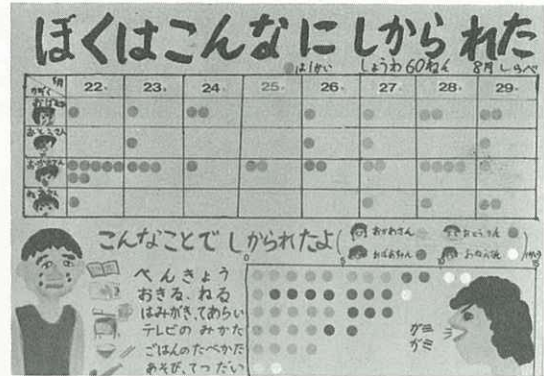 ぼくはこんなにしかられた
●は1かい しょうわ60ねん 8月しらべ
22 23 24 25 26 27 28 29
おばあちゃん
おとうさん
おかあさん
おねえさん
こんなことでしかられたよ
おかあさん おとうさん
おばあちゃん おねえさん
べんきょう
おきる、ねる
はみがき、てあらい
テレビのみかた
ごはんのたべかた
あそび、てつだい
ガミ
ガミ